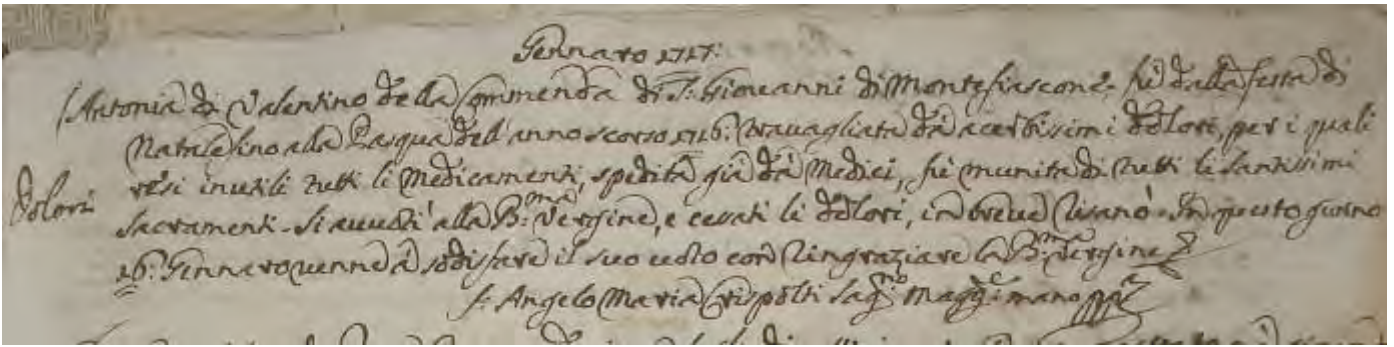 Gennaro 1717:
Antonia di Valentino della Commenda di S: Giovanni di Montefiascone, fù dalla festa di
Natale sino alla Pasqua dell'anno scorso 1716: travagliata da acerbissimi dolori, per i quali
dolori
resi inutili tutti li Medicamenti, spedita già da Medici, fù munita di tutti li Santissimi
Sacramenti. Si avvotì alla B:ma Vergine, e cessati li dolori, in breve risanò. In questo giorno
16: Gennaro venne à sodisfare il suo voto con ringraziare la B:ma Vergine
f: Angelo Maria Crispolti Sag:no Magg:e mano pp:a